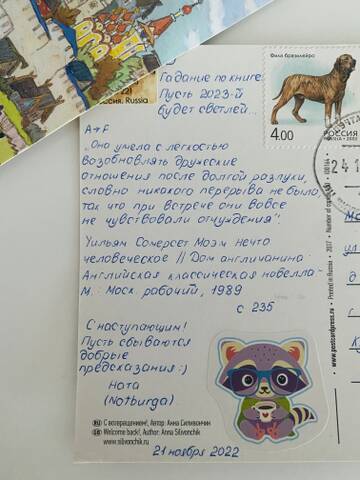 Гадание по книге:
Пусть 2023-й
будет светлей...
Фила бразилейро
4.00
РОССИЯ
A+F
„Она умела с легкостью
возобновлять дружеские
отношения после долгой разлуки,
словно никакого перерыва не было,
так что при встрече они вовсе
не чувствовали отчуждения".
Уильям Сомерсет Моэм Нечто
человеческое // Дом англичанина:
Английская классическая новелла.-
М.: Моск. рабочий, 1989
с 235
С наступающим!
Пусть сбываются
добрые
предсказания :)
Ната
(Notburga)
RU С возвращением!, Автор: Анна Силивончик
GB Welcome back!, Author: Anna Silivonchik
www.silivonchik.ru
21 ноября 2022
www.postcardpress.ru • Printed in Russia • 2017 • Number of